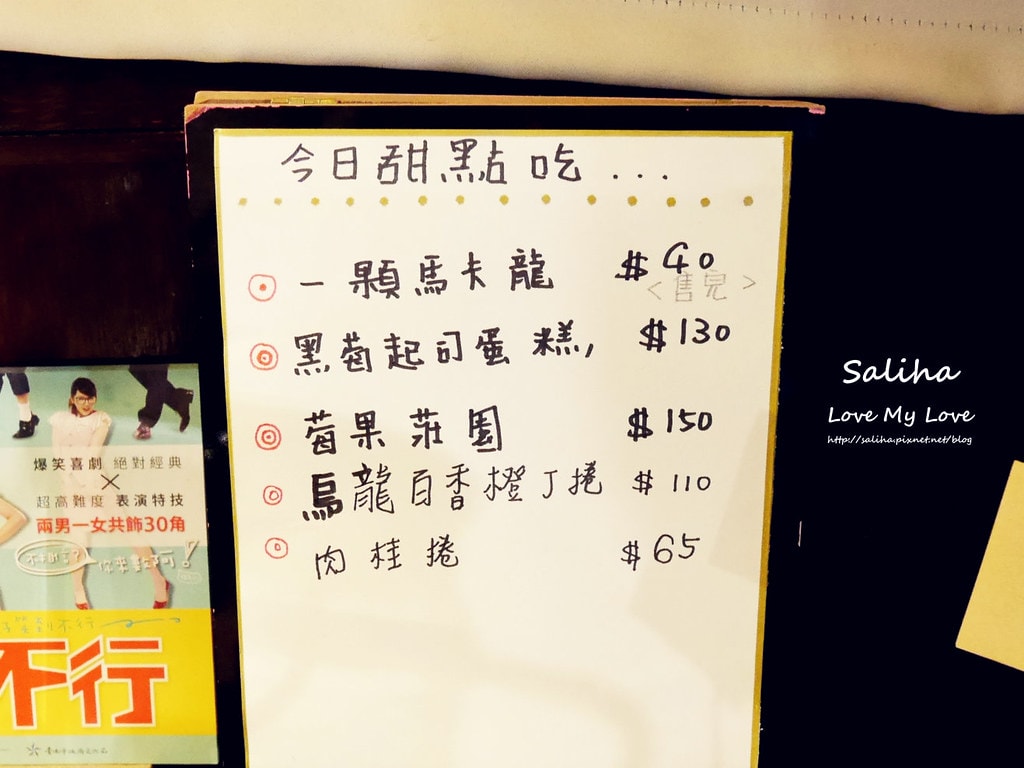 今日甜點吃...
一顆馬卡龍 $40
<售完>
黑莓起司蛋糕, $130
莓果莊園 $150
烏龍百香橙丁捲 $110
肉桂捲 $65
爆笑喜劇 絕對經典
×
超高難度 表演特技
兩男一女共飾30角
不行
Saliha
Love My Love
http://saliha.pixnet.net/blog